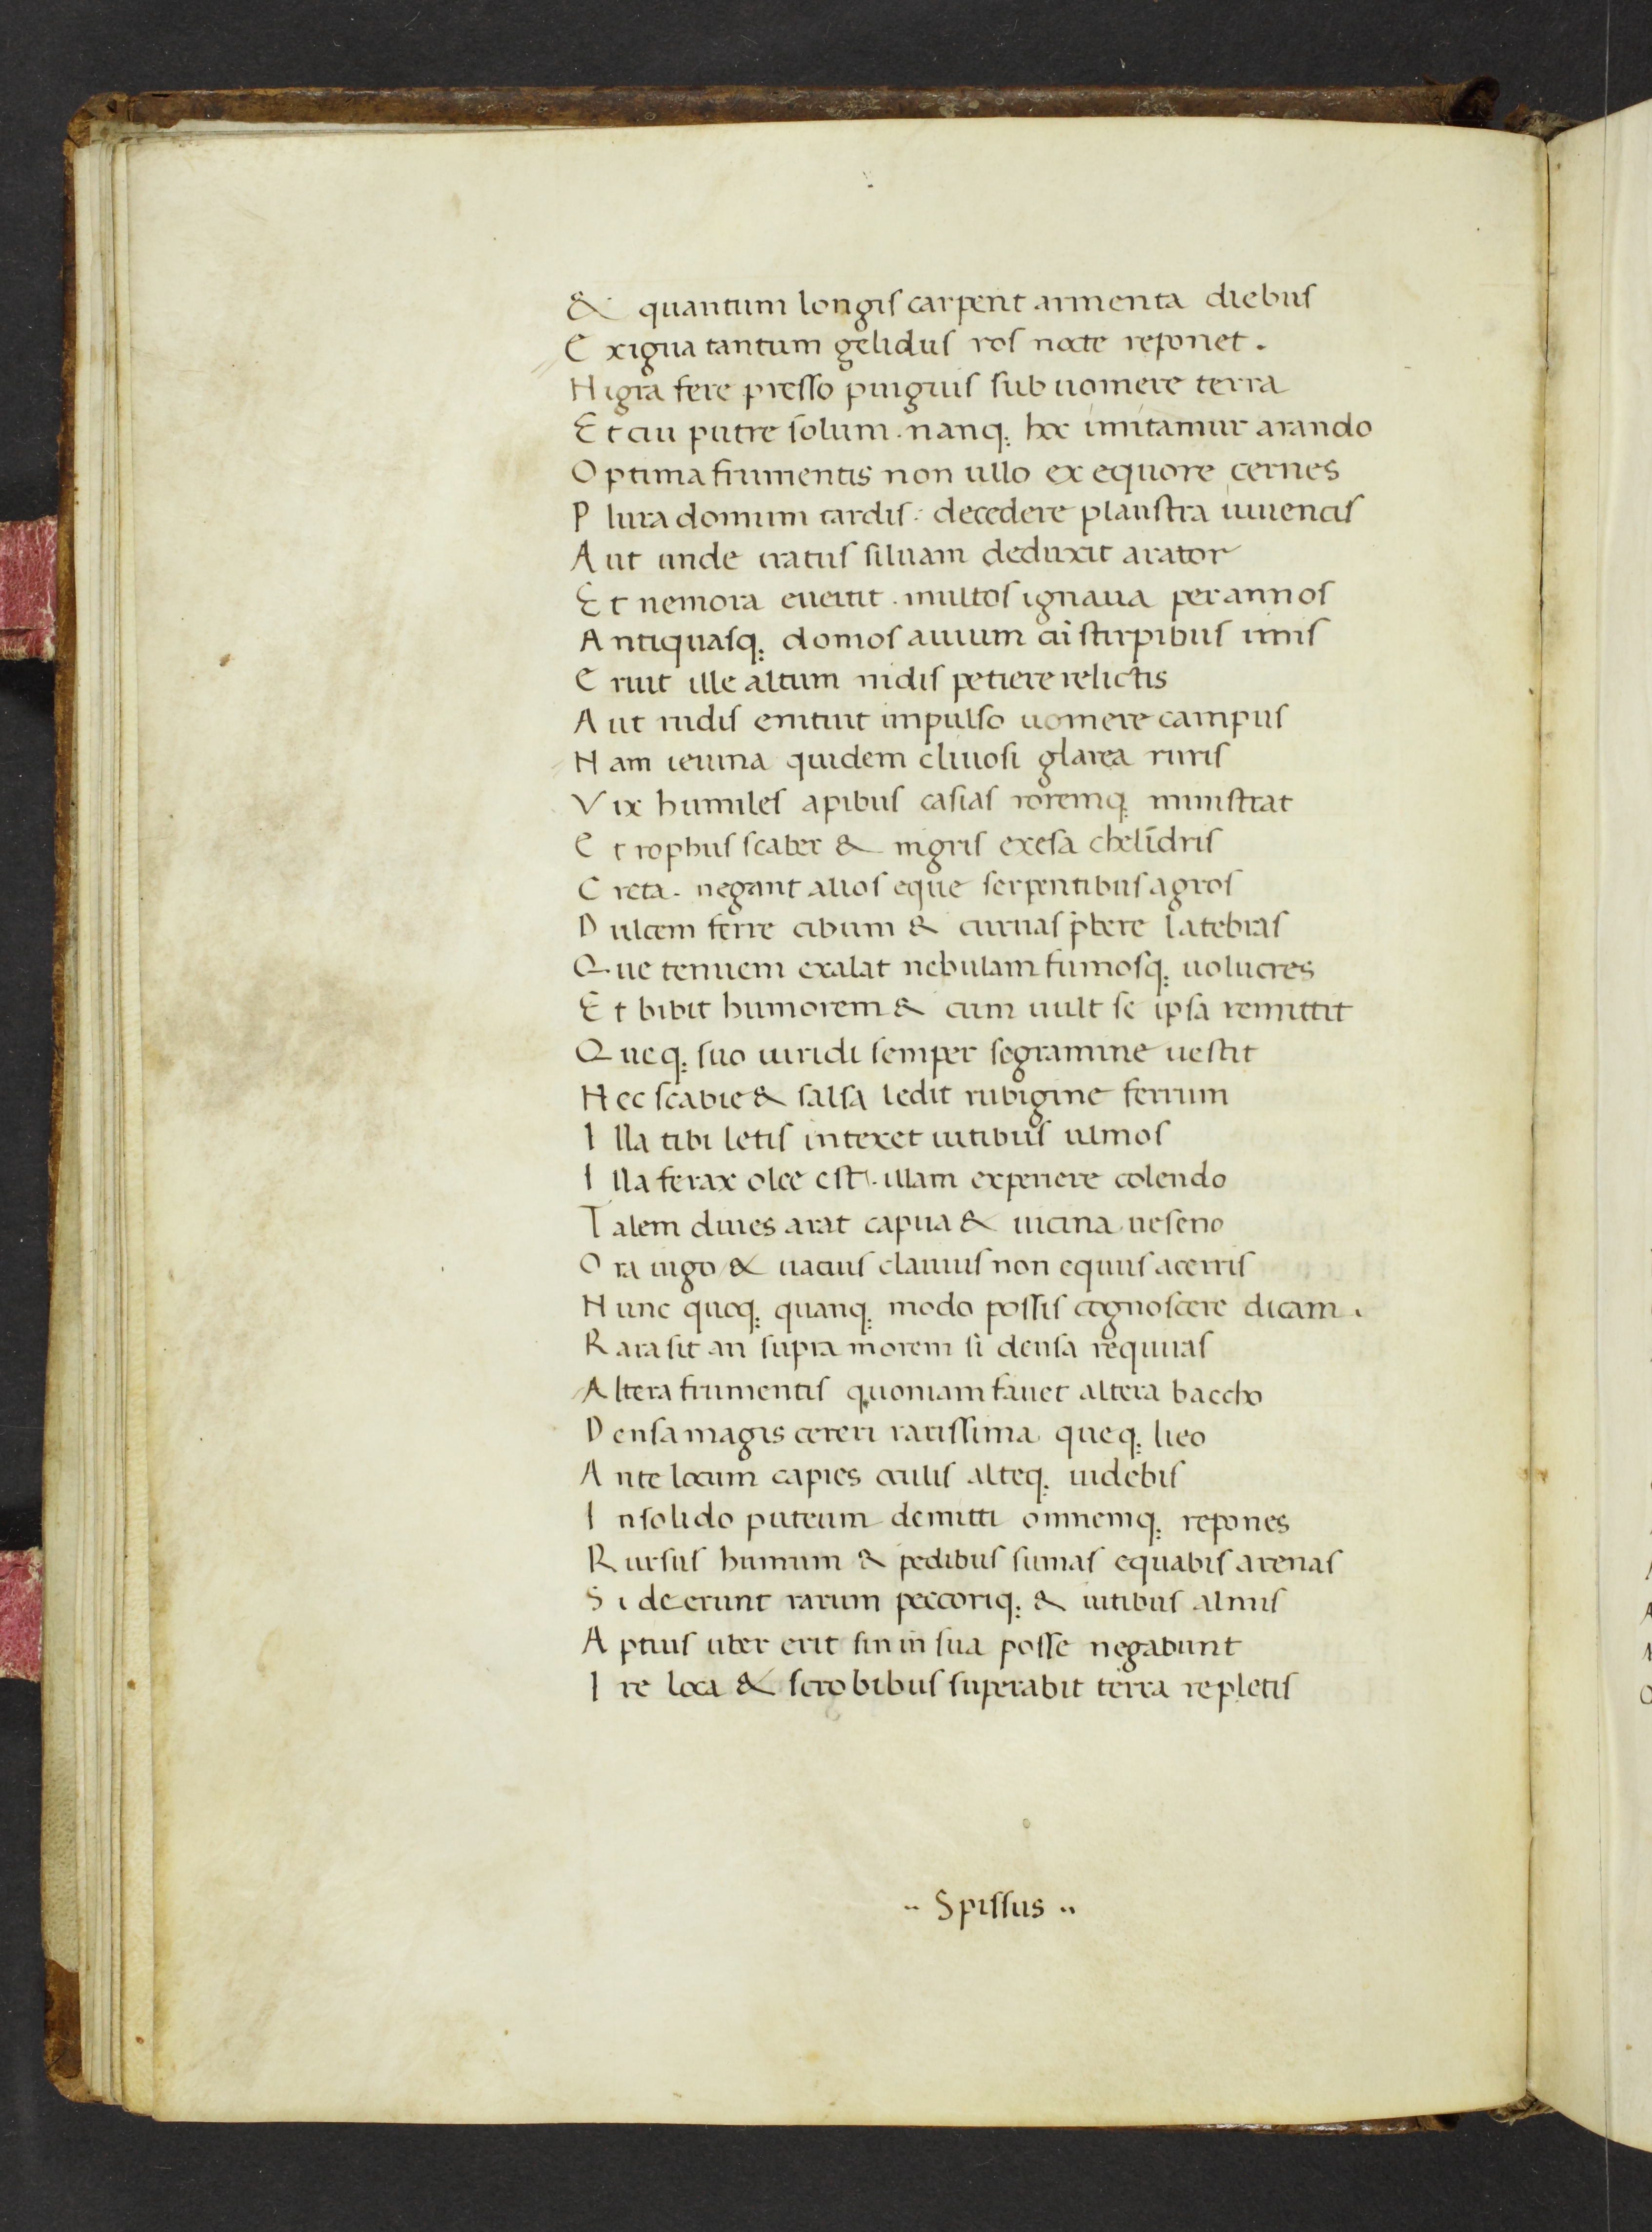 & quantum longis carpent armenta diebus
Exigua tantum gelidus ros nocte reponet.
Nigra fere presso pinguis sub uomere terra
Et cui putre solum. nanq; hoc imitamur arando
Optima frumentis non ullo ex equore cernes
Plura domum tardis decedere plaustra iuuencis
Aut unde iratus siluam deduxit arator
Et nemora euertit. multos ignaua per annos
Antiquasq; domos auium cū stirpibus imis
Eruit ille altum nidis petiere relictis
Aut rudis enituit impulso uomere campus
Nam ieiuna quidem cliuosi glarea ruris
Vix humiles apibus casias roremq; ministrat
Et rophus scaber & nigris exesa chelīdris
Creta. negant alios eque serpentibus agros
Dulcem ferre cibum & curuas p̄bere latebras
Que tenuem exalat nebulam fumosq; uolucres
Et bibit humorem & cum uult se ipsa remittit
Queq; suo uiridi semper segramine uestit
Nec scabie & salsa ledit rubigine ferrum
Illa tibi letis intexet uitibus ulmos
Illa ferax olee est. illam experiere colendo
Talem diues arat capua & uicina ueseno
Ora iugo & uacuis clanius non equus acerris
Nunc quoq; quanq; modo possis cognoscere dicam.
Rara sit an supra morem si densa requiras
Altera frumentis quoniam fauet altera baccho
Densa magis cereri rarissima queq; lieo
Ante locum capies oculis alteq; uidebis
In solido puteum demitti omnemq; repones
Rursus humum & pedibus sumas equabis arenas
Si deerunt rarum peccoriq; & uitibus almis
Aptius uber erit sin in sua posse negabunt
Ire loca & scrobibus superabit terra repletis
.. Spissus ..